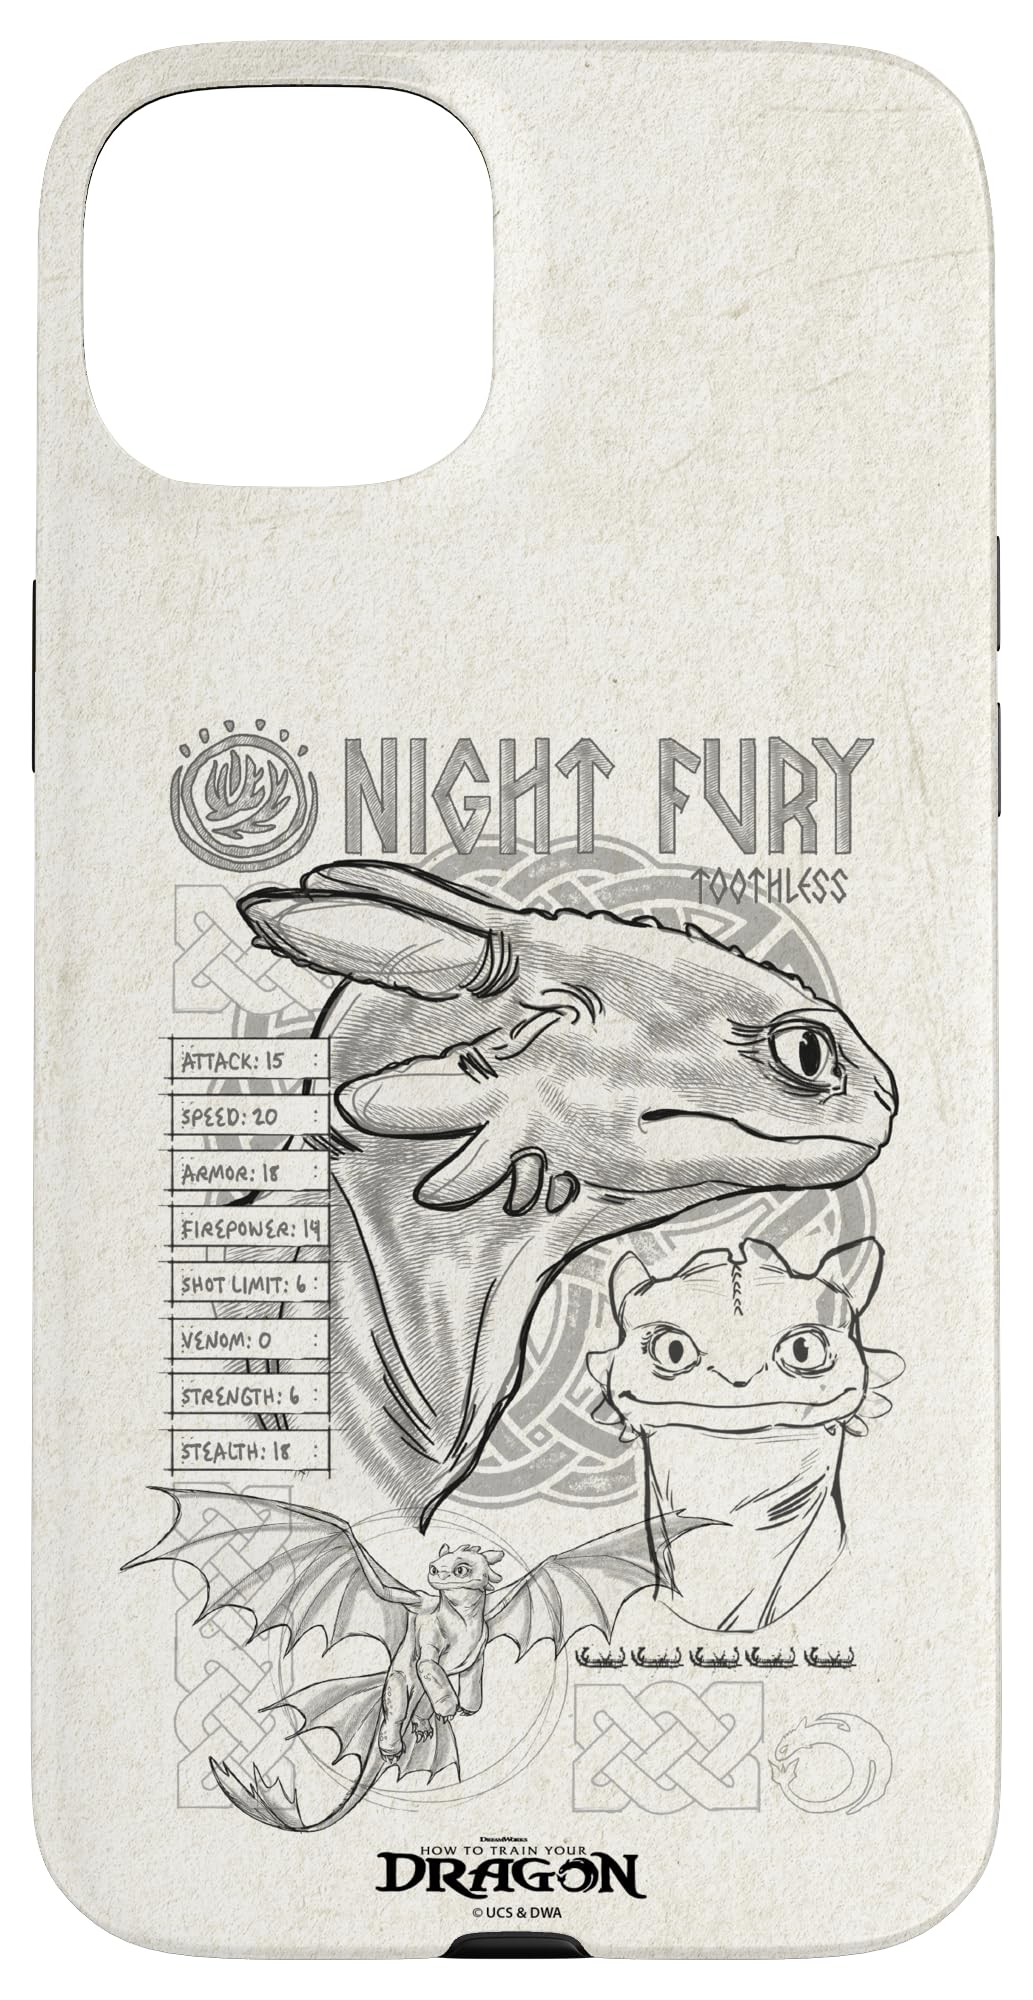 NIGHT FURY
TOOTHLESS
ATTACK: 15 :
SPEED: 20 :
ARMOR: 18 :
FIREPOWER: 14
SHOT LIMIT: 6 :
VENOM: 0 :
STRENGTH: 6 :
STEALTH: 18 :
DREAMWORKS
HOW TO TRAIN YOUR
DRAGON
© UCS & DWA